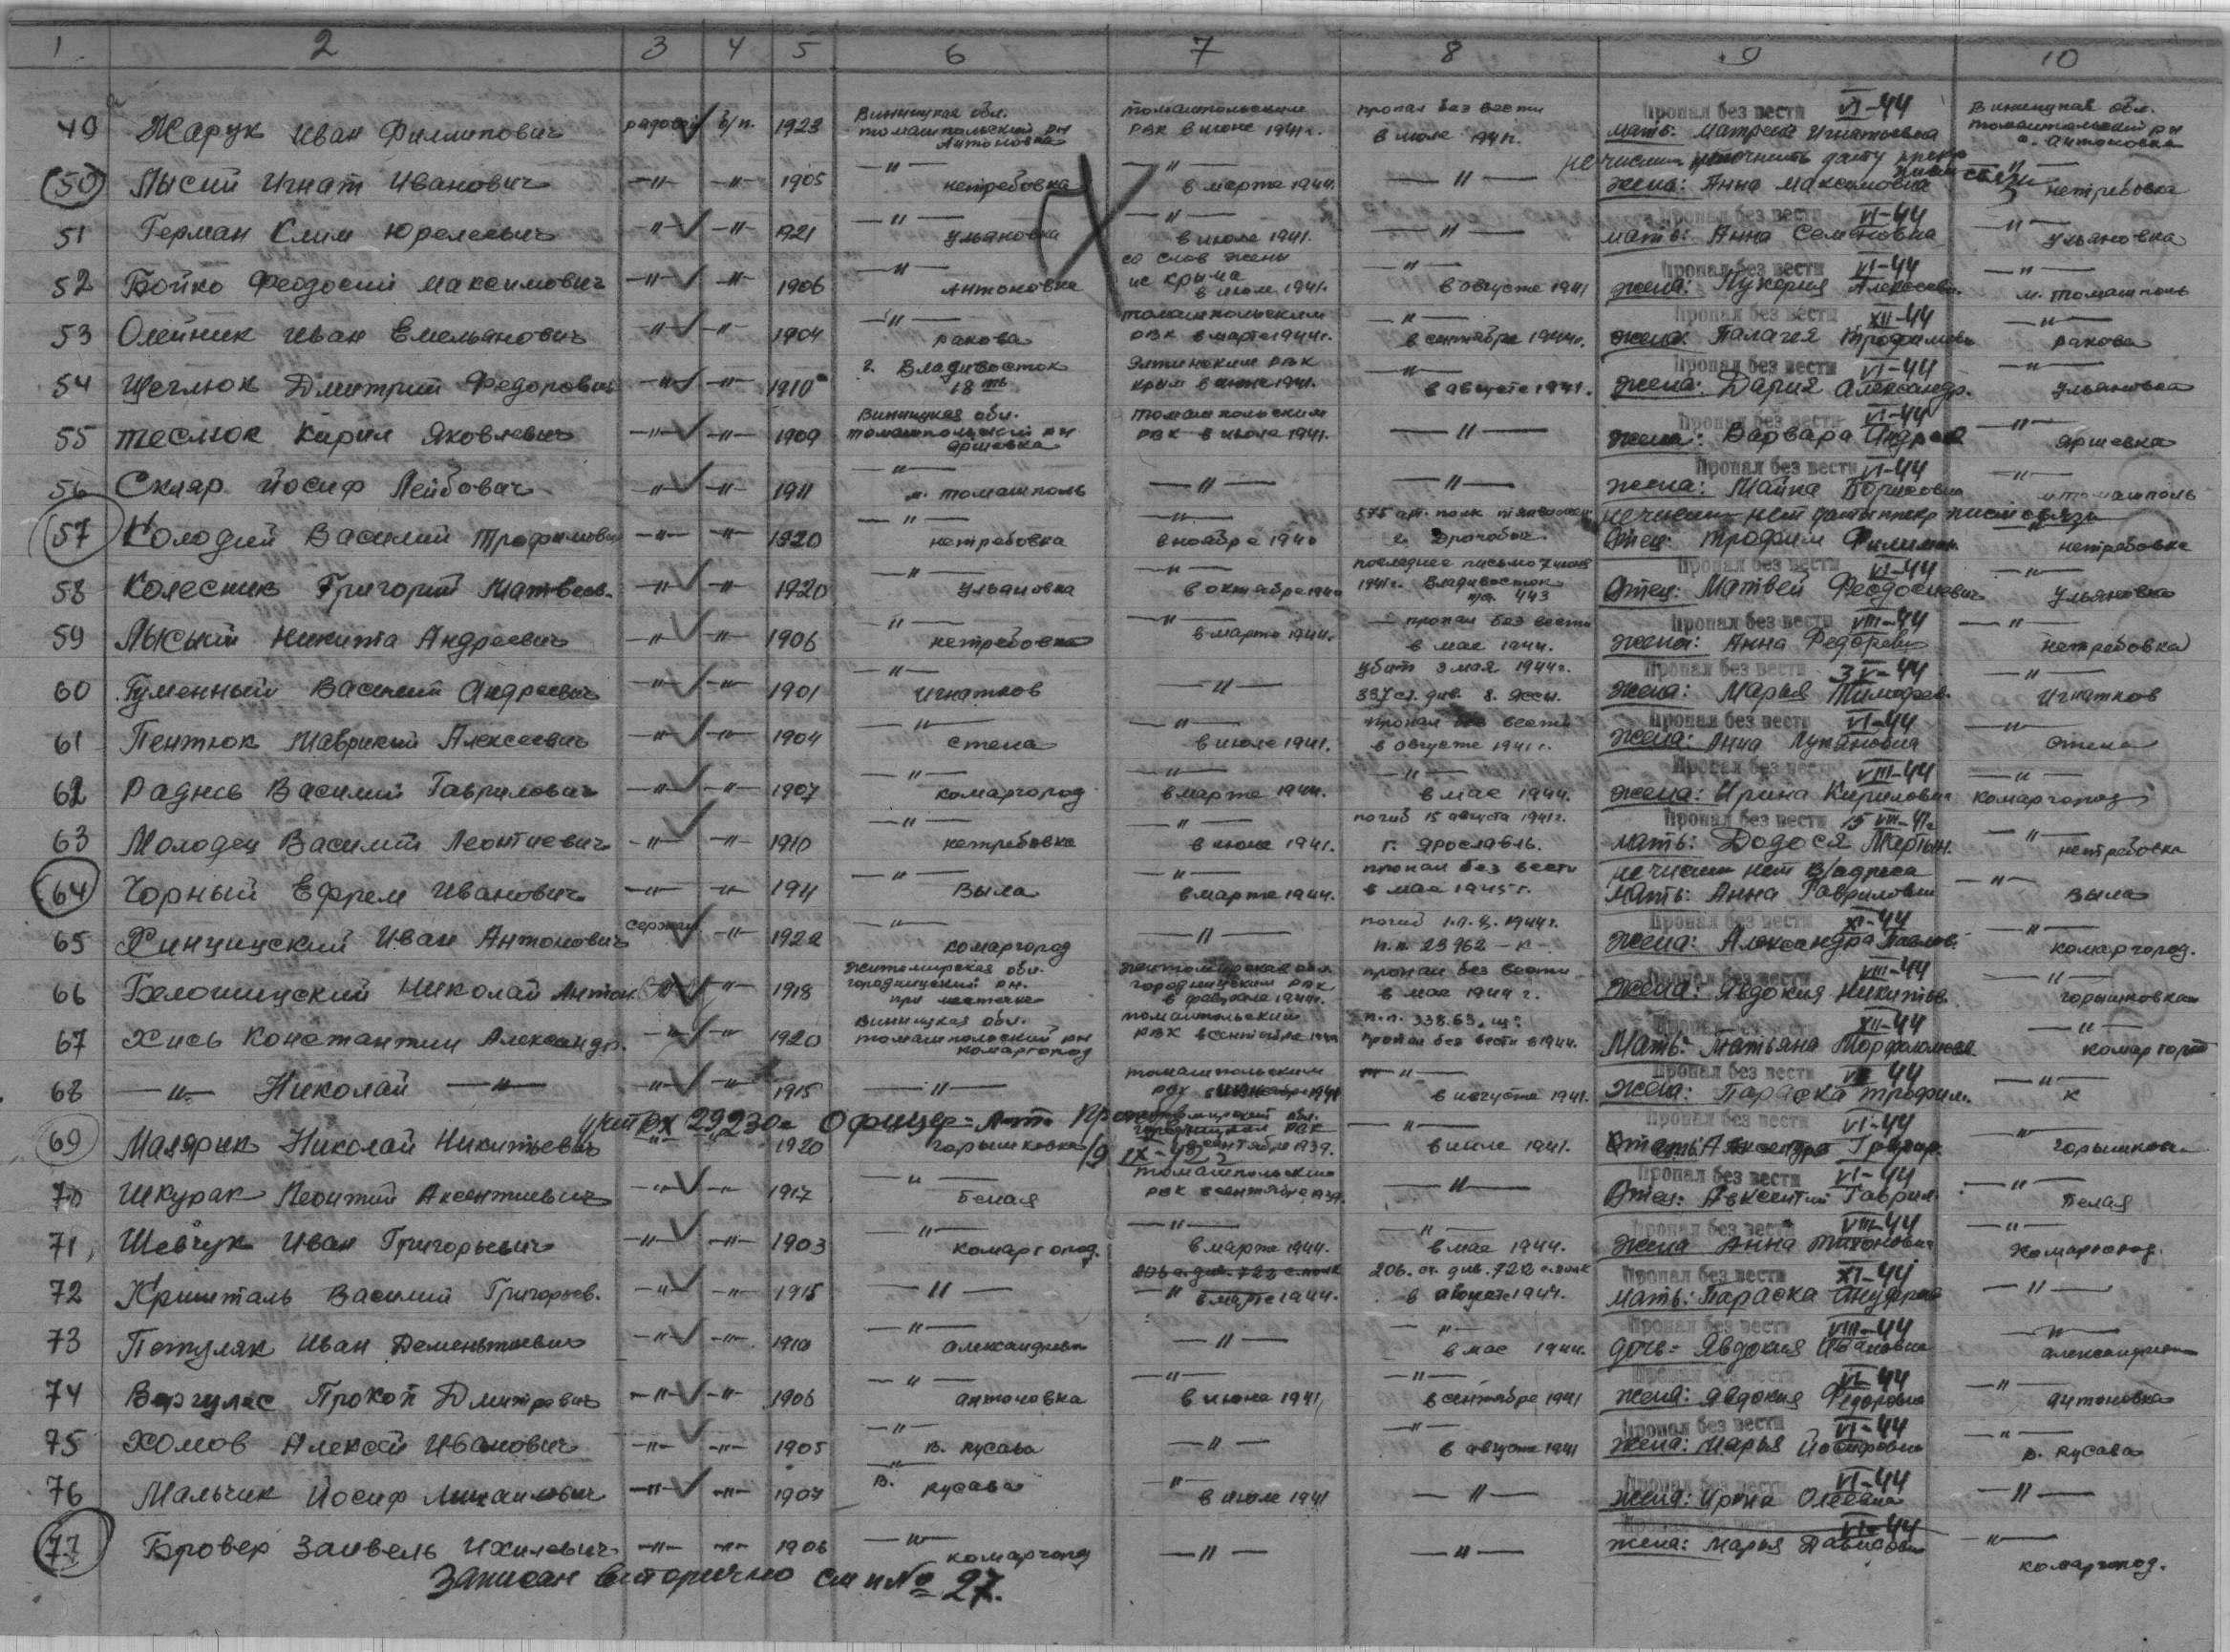 1 2 3 4 5 6 7 8 9 10
49 Жарук Иван Филиппович рядовой б/п. 1923 Винницкая обл. томашпольский рн Антоновка томашпольским РВК в июне 1941г. пропал без вести в июле 1941г. Пропал без вести VI-44 мать: Матрена Игнатьевна Винницкая обл. томашпольский рн с. Антоновка
50 Лысий Игнат Иванович —"— —"— 1905 —"— нетребовка —"— в марте 1944. —"— не числит уточнить дату прекр письм связи жена: Анна Максимовна —"— нетребовка
51 Герман Клим —"— —"— 1921 —"— Ульяновка —"— в июле 1941. —"— Пропал без вести VI-44 мать: Анна Семеновна —"— Ульяновка
52 Бойко Феодосий Максимович —"— —"— 1906 —"— Антоновка со слов жены из Крыма в июле 1941. —"— в августе 1941 Пропал без вести VI-44 жена: Лукерия Алексеевн. —"— м. томашполь
53 Олейник Иван Емельянович —"— —"— 1904 —"— ракова томашпольским РВК в марте 1944г. —"— в сентябре 1944г. Пропал без вести XII-44 жена: Палагея Трофимовн —"— ракова
54 Щеглюк Дмитрий Федорович —"— —"— 1910 г. Владивосток 18 Ялтинским РВК Крым в июне 1941. —"— в августе 1941. Пропал без вести VI-44 жена: Дария Александр. —"— Ульяновка
55 теслюк Кирил Яковлевич —"— —"— 1909 Винницкая обл. томашпольский рн Яришевка томашпольским РВК в июле 1941. —"— Пропал без вести VI-44 жена: Варвара Андреев —"— Яришевка
56 Скляр Йосиф Лейбович —"— —"— 1911 —"— м. томашполь —"— —"— Пропал без вести VI-44 жена: Майка Борисовна —"— м томашполь
57 Колодий Василий Трофимович —"— —"— 1920 —"— нетребовка —"— в ноябре 1940 575 арт. полк г. Дрогобыч не числит нет даты прекр письм связи Отец: Трофим Филимон. —"— нетребовка
58 Колесник Григорий Матвеев. —"— —"— 1920 —"— Ульяновка —"— в октябре 1940 последнее письмо 7 июля 1941г. Владивосток п/я. 443 Пропал без вести VI-44 Отец: Матвей Феодосиевич —"— Ульяновка
59 Лысый Никита Андреевич —"— —"— 1906 —"— нетребовка —"— в марте 1944. — пропал без вести в мае 1944. Пропал без вести VIII-44 жена: Анна Федоровн —"— нетребовка
60 Гуменный Василий Андреевич —"— —"— 1901 —"— Игнатков —"— убит 3 мая 1944г. див. г. Яссы. Пропал без вести 3 V-44 жена: Мария Тимофеев. —"— Игнатков
61 Пентюк Маврикий Алексеевич —"— —"— 1904 —"— стена —"— в июле 1941. пропал без вести в августе 1941г. Пропал без вести VI-44 жена: Анна Лукановна —"— стена
62 Раднев Василий Гаврилович —"— —"— 1907 —"— комаргород —"— в марте 1944. —"— в мае 1944. Пропал без вести VIII-44 жена: Ирина Кириловна —"— комаргород
63 Молодец Василий Леонтиевич —"— —"— 1910 —"— нетребовка —"— в июне 1941. погиб 15 августа 1941г. г. Ярославль. Пропал без вести 15 VIII-41г мать: Додося Мартын. —"— нетребовка
64 Чорный Ефрем Иванович —"— —"— 1911 —"— Выла —"— в марте 1944. пропал без вести в мае 1945г. не числит нет в/адреса мать: Анна Гавриловн —"— Выла
65 Хинчицский Иван Антонович сержант —"— 1922 —"— комаргород —"— погиб 1944г. п.п. 23962-к Пропал без вести XI-44 жена: Александра Павлов. —"— комаргород.
66 Белошицский Николай Антон —"— 1918 Житомирская обл. городницский рн. житомирская обл. городницким РВК в феврале 1944г. пропал без вести в мае 1944г. Пропал без вести VIII-44 жена: Явдокия Никитов. —"— горышковка
67 Хись Константин Александр. —"— —"— 1920 Винницкая обл. томашпольский рн комаргород томашпольским РВК в сентябре п.п. 33863 пропал без вести в 1944. Пропал без вести XII-44 Мать: Татьяна —"— комаргород
68 —"— Николай —"— —"— —"— 1915 —"— томашпольским РВК —"— в августе 1941. Пропал без вести VI 44 жена: Параска трофим. —"— к
учит вх 29230с Офицер
69 Малярик Николай Никитьевич —"— 1920 горышковка РВК сентября 1939. —"— в июле 1941. Пропал без вести VI-44 —"— горышковка
70 Шкурак Леонтий Аксентиевич —"— —"— 1917 —"— Белая томашпольским РВК в сентябре 1939. —"— Пропал без вести VI-44 Отец: Авксентий Гаврил. —"— Белая
71 Шевчук Иван Григорьевич —"— —"— 1903 —"— комаргород. —"— в марте 1944. —"— в мае 1944. Пропал без вести VIII-44 жена Анна Тихоновна —"— Комаргород.
72 Кришталь Василий Григорьев. —"— —"— 1915 —"— 206 с. див. 722 с. полк —"— в марте 1944. 206. ст. див. 722 с. полк в августе 1944. Пропал без вести XI-44 мать: Параска —"—
73 Потуляк Иван Дементиевич —"— —"— 1910 —"— александровка —"— —"— в мае 1944. Пропал без вести VIII-44 дочь: Явдокия Ивановна —"— александровка
74 Варгулес Прокоп Дмитрович —"— —"— 1906 —"— антоновка —"— в июне 1941 —"— в сентябре 1941 Пропал без вести VI-44 жена: Явдокия Федоровна —"— антоновка
75 Хомов Алексей Иванович —"— —"— 1905 —"— В. Русава —"— —"— в августе 1941 Пропал без вести VI-44 жена: Марья Йосифовна —"— В. Русава
76 Мальчик Йосиф Михайлович —"— —"— 1907 —"— В. Русава —"— в июле 1941 —"— Пропал без вести VI-44 жена: Ирина —"—
77 Бровер Заивель Ихилевич —"— —"— 1906 —"— комаргород —"— —"— Пропал без вести VI-44 жена: Марья Давидовн —"— комаргород.
Записан вторично см п№ 27.